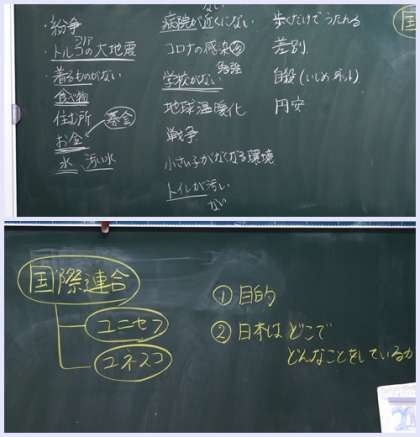 ・紛争
・トルコの大地震
シリア
着るものがない
食べ物
住む所
お金
募金
水 汚い水
ない
病院が近くにない
コロナの感染
勉強
学校がない
地球温暖化
戦争
小さい子がなくなる環境
トイレが汚い
ない
歩くだけでうたれる
差別
自殺(いじめ ネット)
円安
国際連合
ユニセフ
ユネスコ
① 目的
② 日本は どこで
どんなことをしているか
20